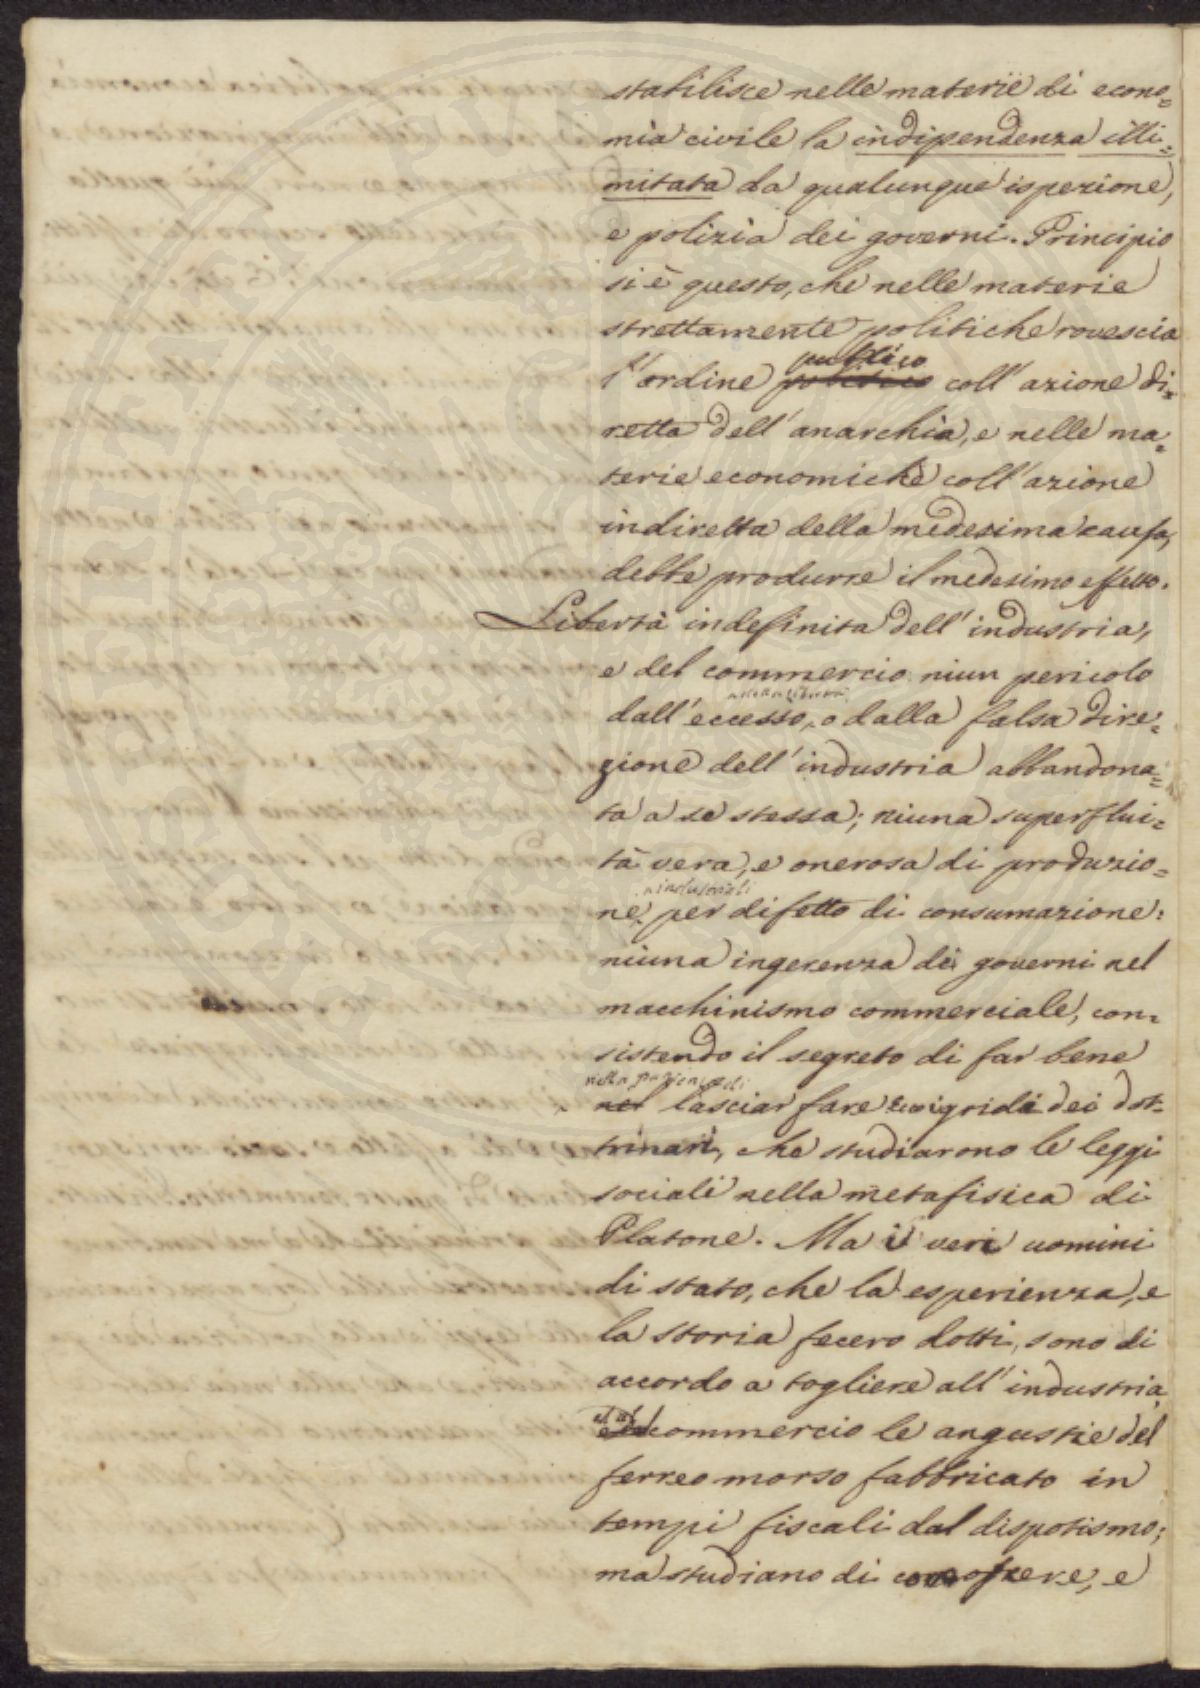 stabilisce nelle materie di econo=
mia civile la indipendenza illi=
mitata da qualunque ispezione,
e polizia dei governi. Principio
si è questo, che nelle materie
strettamente politiche rovescia
pubblico
l'ordine politico coll'azione di=
retta dell'anarchia, e nelle ma=
terie economiche coll'azione
indiretta della medesima causa,
debbe produrre il medesimo effetto.
Libertà indefinita dell'industria,
e del commercio niun pericolo
della libertà
dall'eccesso, o dalla falsa dire=
zione dell'industria abbandona=
ta a se stessa; niuna superflui=
tà vera, e onerosa di produzio=
industriali
ne per difetto di consumazione:
niuna ingerenza di governi nel
macchinismo commerciale, con=
sistendo il segreto di far bene
nella pazienza di
nel lasciar fare Ecco i grida dei dot=
trinari, che studiarono le leggi
sociali nella metafisica di
Platone. Ma i veri uomini
di stato, che la esperienza, e
la storia fecero dotti, sono di
accordo a togliere all'industria,
ed al
commercio le angustie del
ferreo morso fabbricato in
tempi fiscali dal dispotismo;
ma studiano di conoscere, e